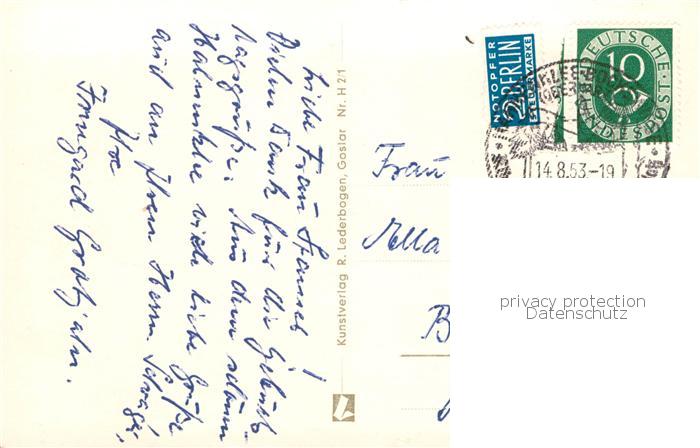 Liebe Frau Spannel!
Vielen Dank für die Geburts-
tagsgrüße. Aus dem schönen
Hahnenklee viele liebe Grüße
auch an Ihren Herrn Schwager,
Ihre
Irmgard
Kunstverlag R. Lederbogen, Goslar Nr. H 2/1
NOTOPFER
2 BERLIN
STEUERMARKE
DEUTSCHE
10
BUNDESPOST
14.8.53-19
Frau
Mella
B
privacy protection
Datenschutz